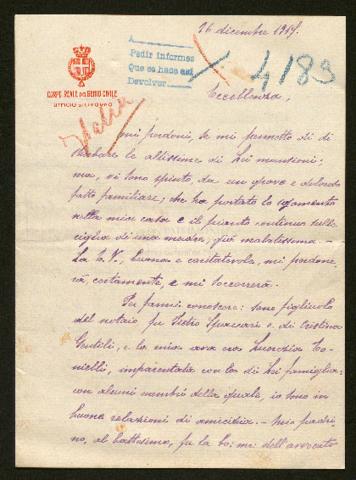 26 dicembre 1917.
A
Pedir informes
Que se hace así
Devolver
4183
CORPO REALE DEL GENIO CIVILE
UFFICIO DI LIVORNO
Italia
Eccellenza,
mi perdoni, se mi permetto di di-
sturbare le altissime di Lei mansioni:
ma, vi sono spinto, da un grave e doloroso
fatto familiare; che ha portato lo sgomento
nella mia casa e il pianto continuo sulle
ciglia di una madre, già malatissima. -
La E. V., buona e caritatevole, mi perdone-
rà, certamente, e mi soccorrerà.
Per farmi conoscere: sono figliuolo
del notaio fu Pietro e di Cristina
Gentili, e la mia ava era Lucrezia To-
nielli, imparentata con la di Lei famiglia:
con alcuni membri della quale, io sono in
buona relazioni di amicizia. - Mio padri-
no, al battesimo, fu la bo: me: dell'avvocato